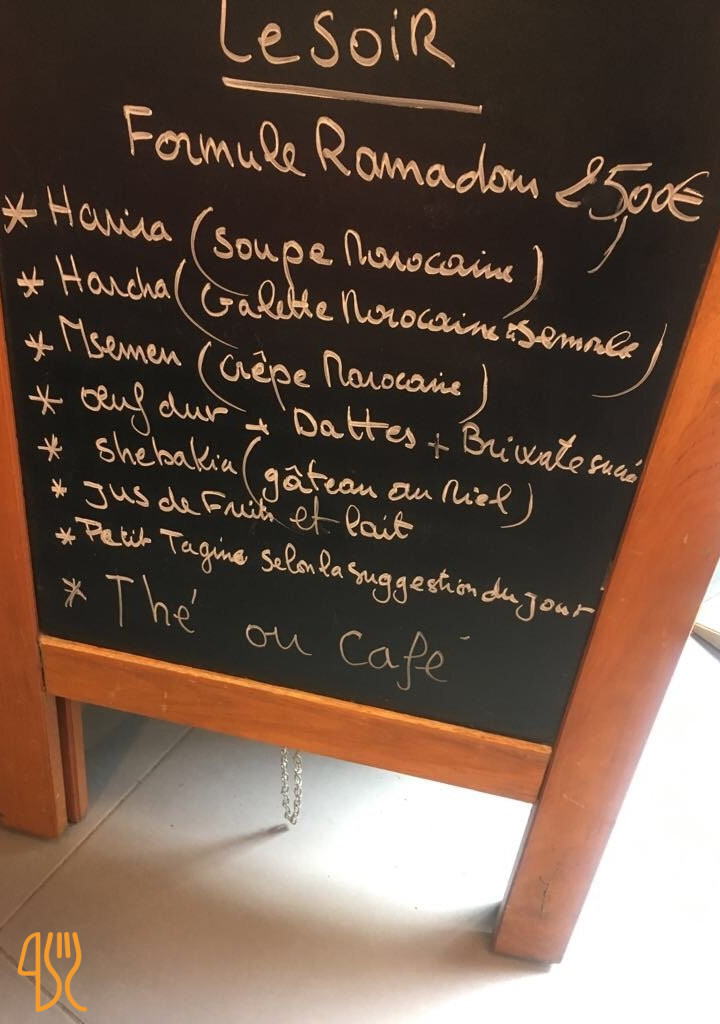 Le SOIR
Formule Ramadan 25,00€
* Harira (soupe Marocaine)
* Harcha (Galette Marocaine semoule)
* Msemen (crêpe Marocaine)
* œuf dur + Dattes + Briwate sucré
* shebakia (gâteau au Miel)
* Jus de Fruits et lait
* Petit Tagine selon la suggestion du jour
* Thé ou café